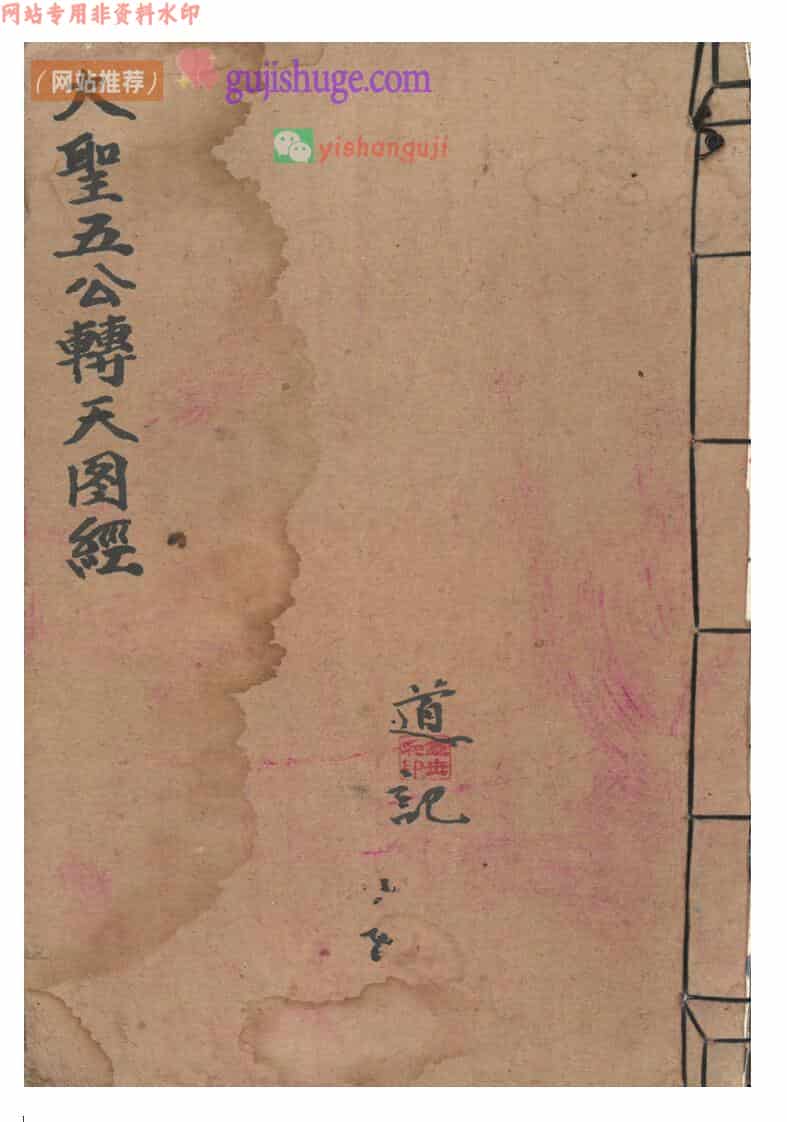 网站专用非资料水印
（网站推荐）
gujishuge.com
yishanguji
大聖五公轉天图經
道記